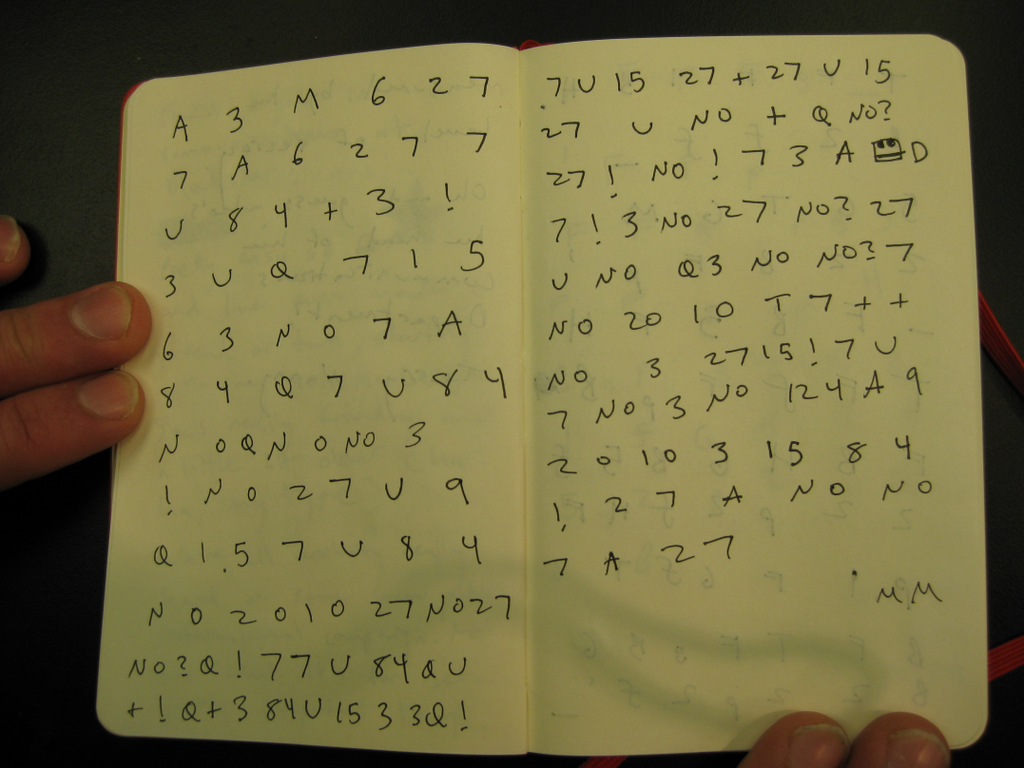 A 3 M 6 2 7
7 A 6 2 7 7
U 8 4 + 3 !
3 U Q 7 1 5
6 3 N 0 7 A
8 4 Q 7 U 8 4
N 0 Q N 0 NO 3
! N 0 2 7 U 9
Q 1.5 7 U 8 4
N 0 2 0 1 0 27 NO27
NO? Q ! 7 7 U 84 Q U
+ ! Q + 3 84 U 15 3 3Q !
.7 U 15 27 + 27 U 15
27 U NO + Q NO?
27 ! NO ! 7 3 A D
7 ! 3 NO 27 NO? 27
U NO Q3 NO NO? 7
NO 20 10 T 7 + +
NO 3 27 15 ! 7 U
7 NO 3 NO 124 A 9
2 0 10 3 15 8 4
! 2 7 A NO NO
7 A 27
M.M